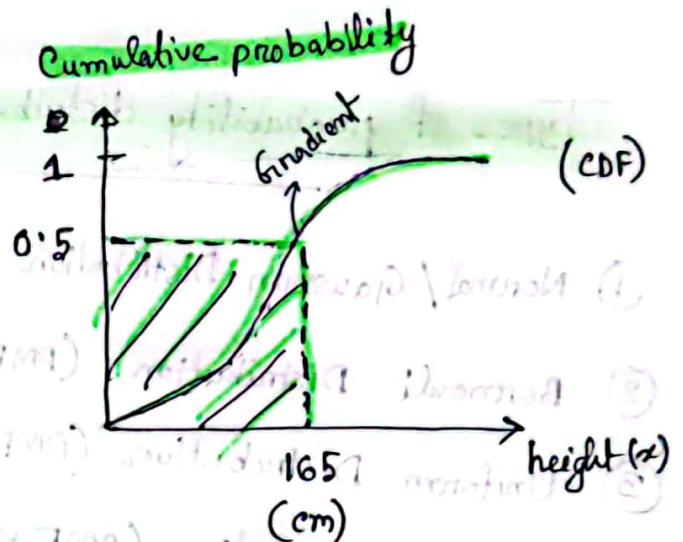 Cumulative probability
1
Gradient
(CDF)
0.5
165
(cm)
height (x)